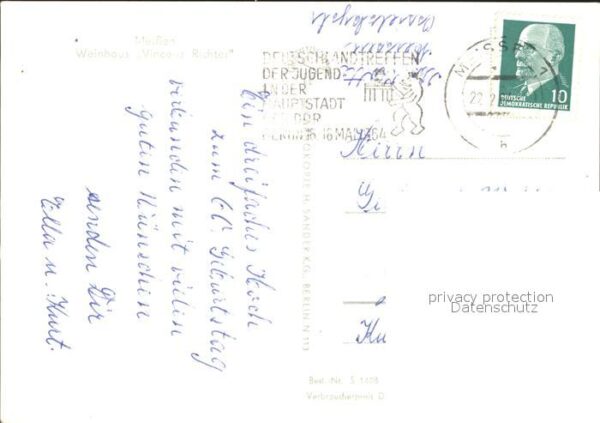 Meißen
Weinhaus „Vincenz Richter"
Ein dreifaches Hoch
zum 60. Geburtstag
verbunden mit vielen
guten Wünschen
senden Dir
Ella u. Kurt.
DEUTSCHLANDTREFFEN
DER JUGEND
IN DER
HAUPTSTADT
DER DDR
BERLIN 16.-18. MAI 1964
DEUTSCHE
DEMOKRATISCHE REPUBLIK
10
h
Herrn
privacy protection
Datenschutz
H. SANDER K.G., BERLIN N 113
Best.-Nr. S 1408
Verbraucherpreis D